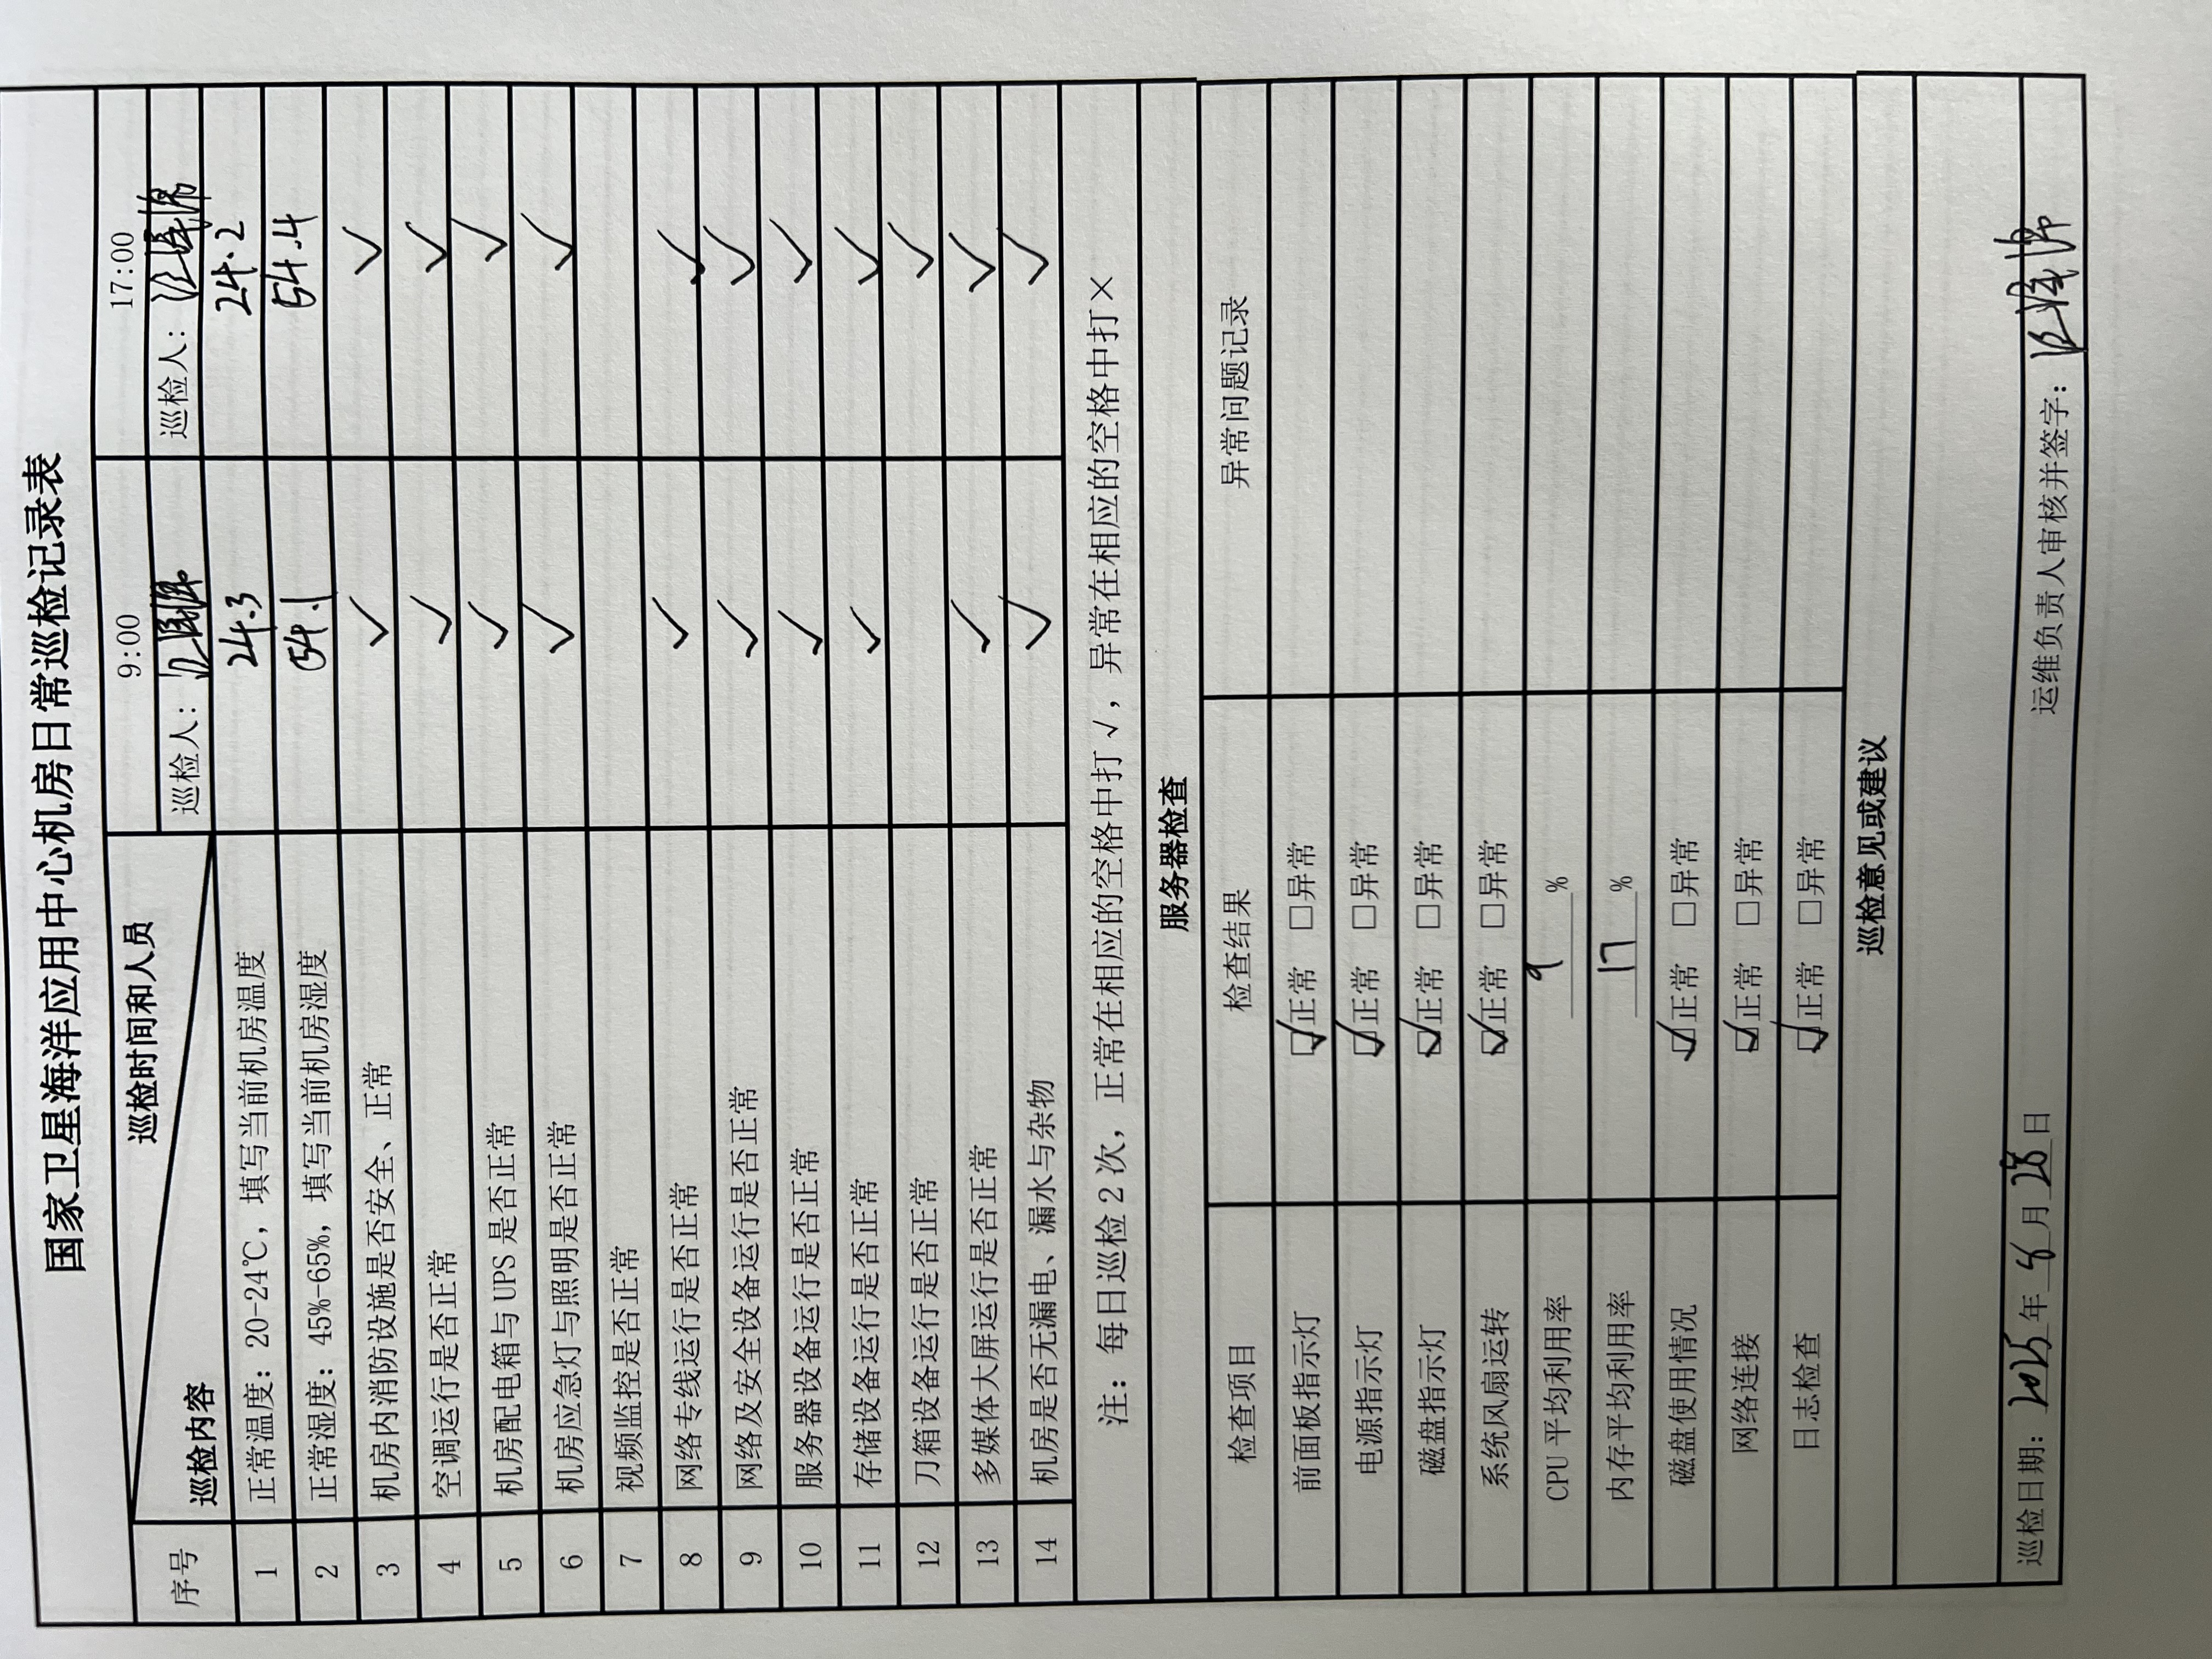 国家卫星海洋应用中心机房日常巡检记录表
序号 巡检内容 巡检时间和人员 9:00 17:00
巡检人: 巡检人:
1 正常温度: 20-24℃, 填写当前机房温度 24.3 24.2
2 正常湿度: 45%-65%, 填写当前机房湿度 54.1 54.4
3 机房内消防设施是否安全、正常 ✓ ✓
4 空调运行是否正常 ✓ ✓
5 机房配电箱与 UPS 是否正常 ✓ ✓
6 机房应急灯与照明是否正常 ✓ ✓
7 视频监控是否正常
8 网络专线运行是否正常 ✓ ✓
9 网络及安全设备运行是否正常 ✓ ✓
10 服务器设备运行是否正常 ✓ ✓
11 存储设备运行是否正常 ✓ ✓
12 刀箱设备运行是否正常 ✓
13 多媒体大屏运行是否正常 ✓ ✓
14 机房是否无漏电、漏水与杂物 ✓ ✓
注: 每日巡检 2 次, 正常在相应的空格中打 √, 异常在相应的空格中打 ×
服务器检查
检查项目 检查结果 异常问题记录
前面板指示灯 ☑正常 □异常
电源指示灯 ☑正常 □异常
磁盘指示灯 ☑正常 □异常
系统风扇运转 ☑正常 □异常
CPU 平均利用率 9 %
内存平均利用率 17 %
磁盘使用情况 ☑正常 □异常
网络连接 ☑正常 □异常
日志检查 ☑正常 □异常
巡检意见或建议
巡检日期: 2025 年 8 月 28 日 运维负责人审核并签字: